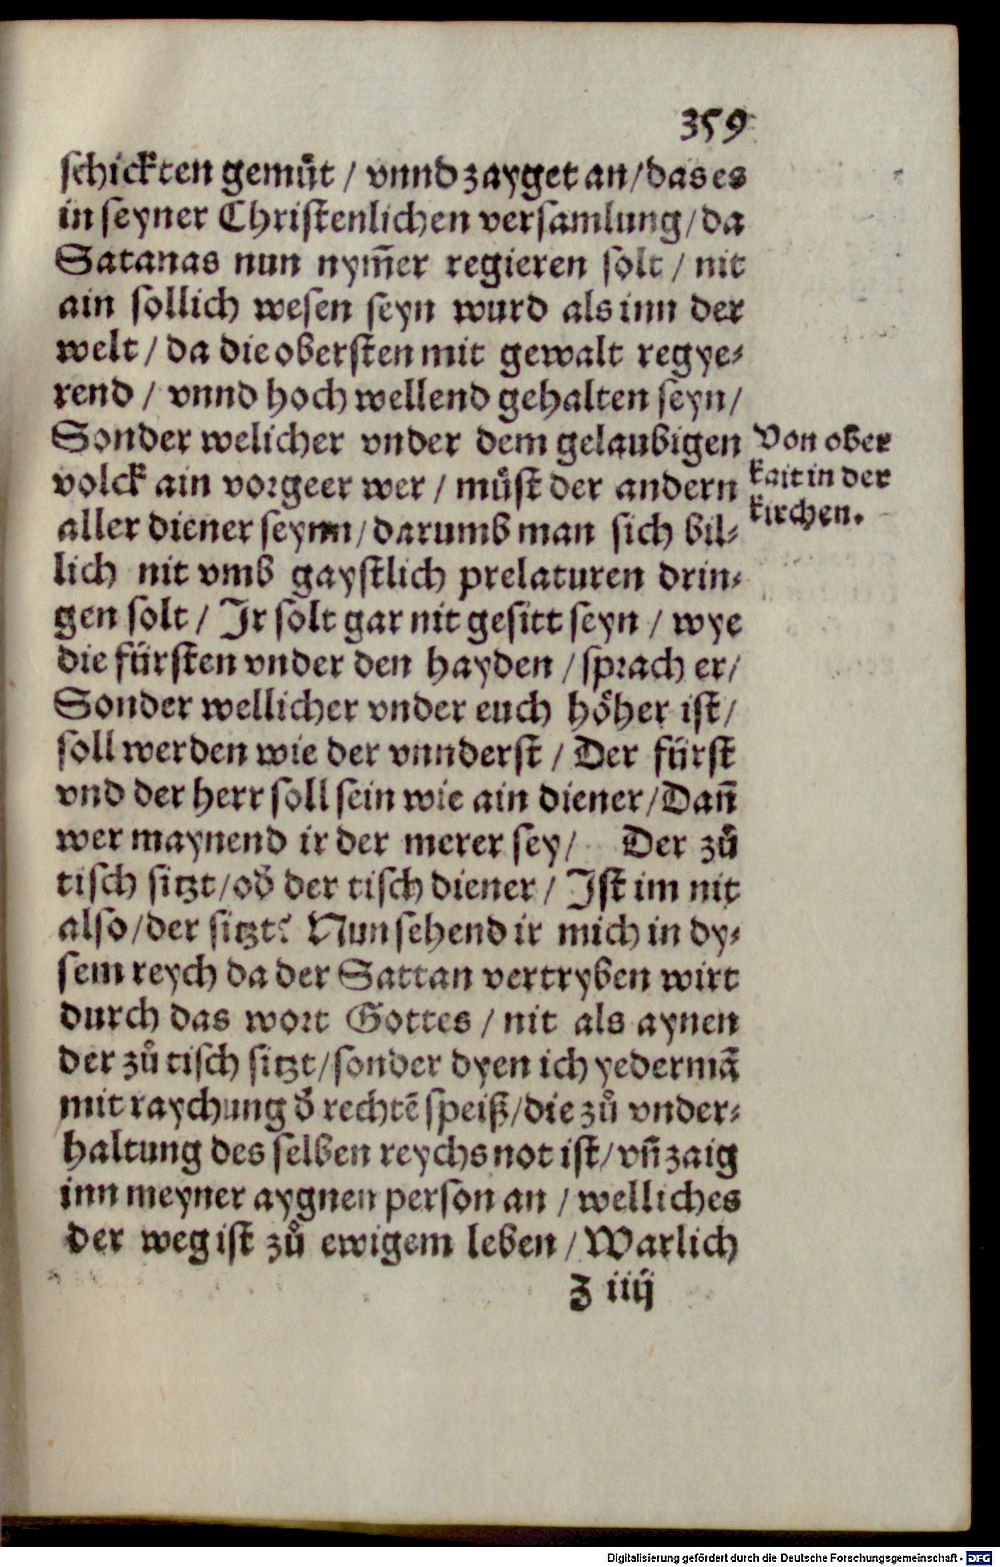 359
schickten gemuͤt / vnnd zayget an/das es
in seyner Christenlichen versamlung/da
Satanas nun nym̃er regieren solt / nit
ain sollich wesen seyn wurd als inn der
welt / da die obersten mit gewalt regye⸗
rend / vnnd hoch wellend gehalten seyn/
Sonder welicher vnder dem gelaubigen
volck ain vorgeer wer / muͤst der andern
aller diener seynn/darumb man sich bil⸗
lich nit vmb gaystlich prelaturen drin⸗
gen solt / Jr solt gar nit gesitt seyn / wye
die fürsten vnder den hayden / sprach er/
Sonder wellicher vnder euch hoͤher ist/
soll werden wie der vnnderst / Der fürst
vnd der herr soll sein wie ain diener/Dañ
wer maynend ir der merer sey/ Der zuͦ
tisch sitzt/od̕ der tisch diener / Jst im nit
also/der sitzt? Nun sehend ir mich in dy⸗
sem reych da der Sattan vertryben wirt
durch das wort Gottes / nit als aynen
der zuͦ tisch sitzt/sonder dyen ich yedermã
mit raychung d̕ rechtẽ speiß/die zuͦ vnder⸗
haltung des selben reychs not ist/vñ zaig
inn meyner aygnen person an / welliches
der weg ist zuͦ ewigem leben / Warlich
Von ober
kait in der
kirchen.
Z iiij
Digitalisierung gefördert durch die Deutsche Forschungsgemeinschaft - DFG